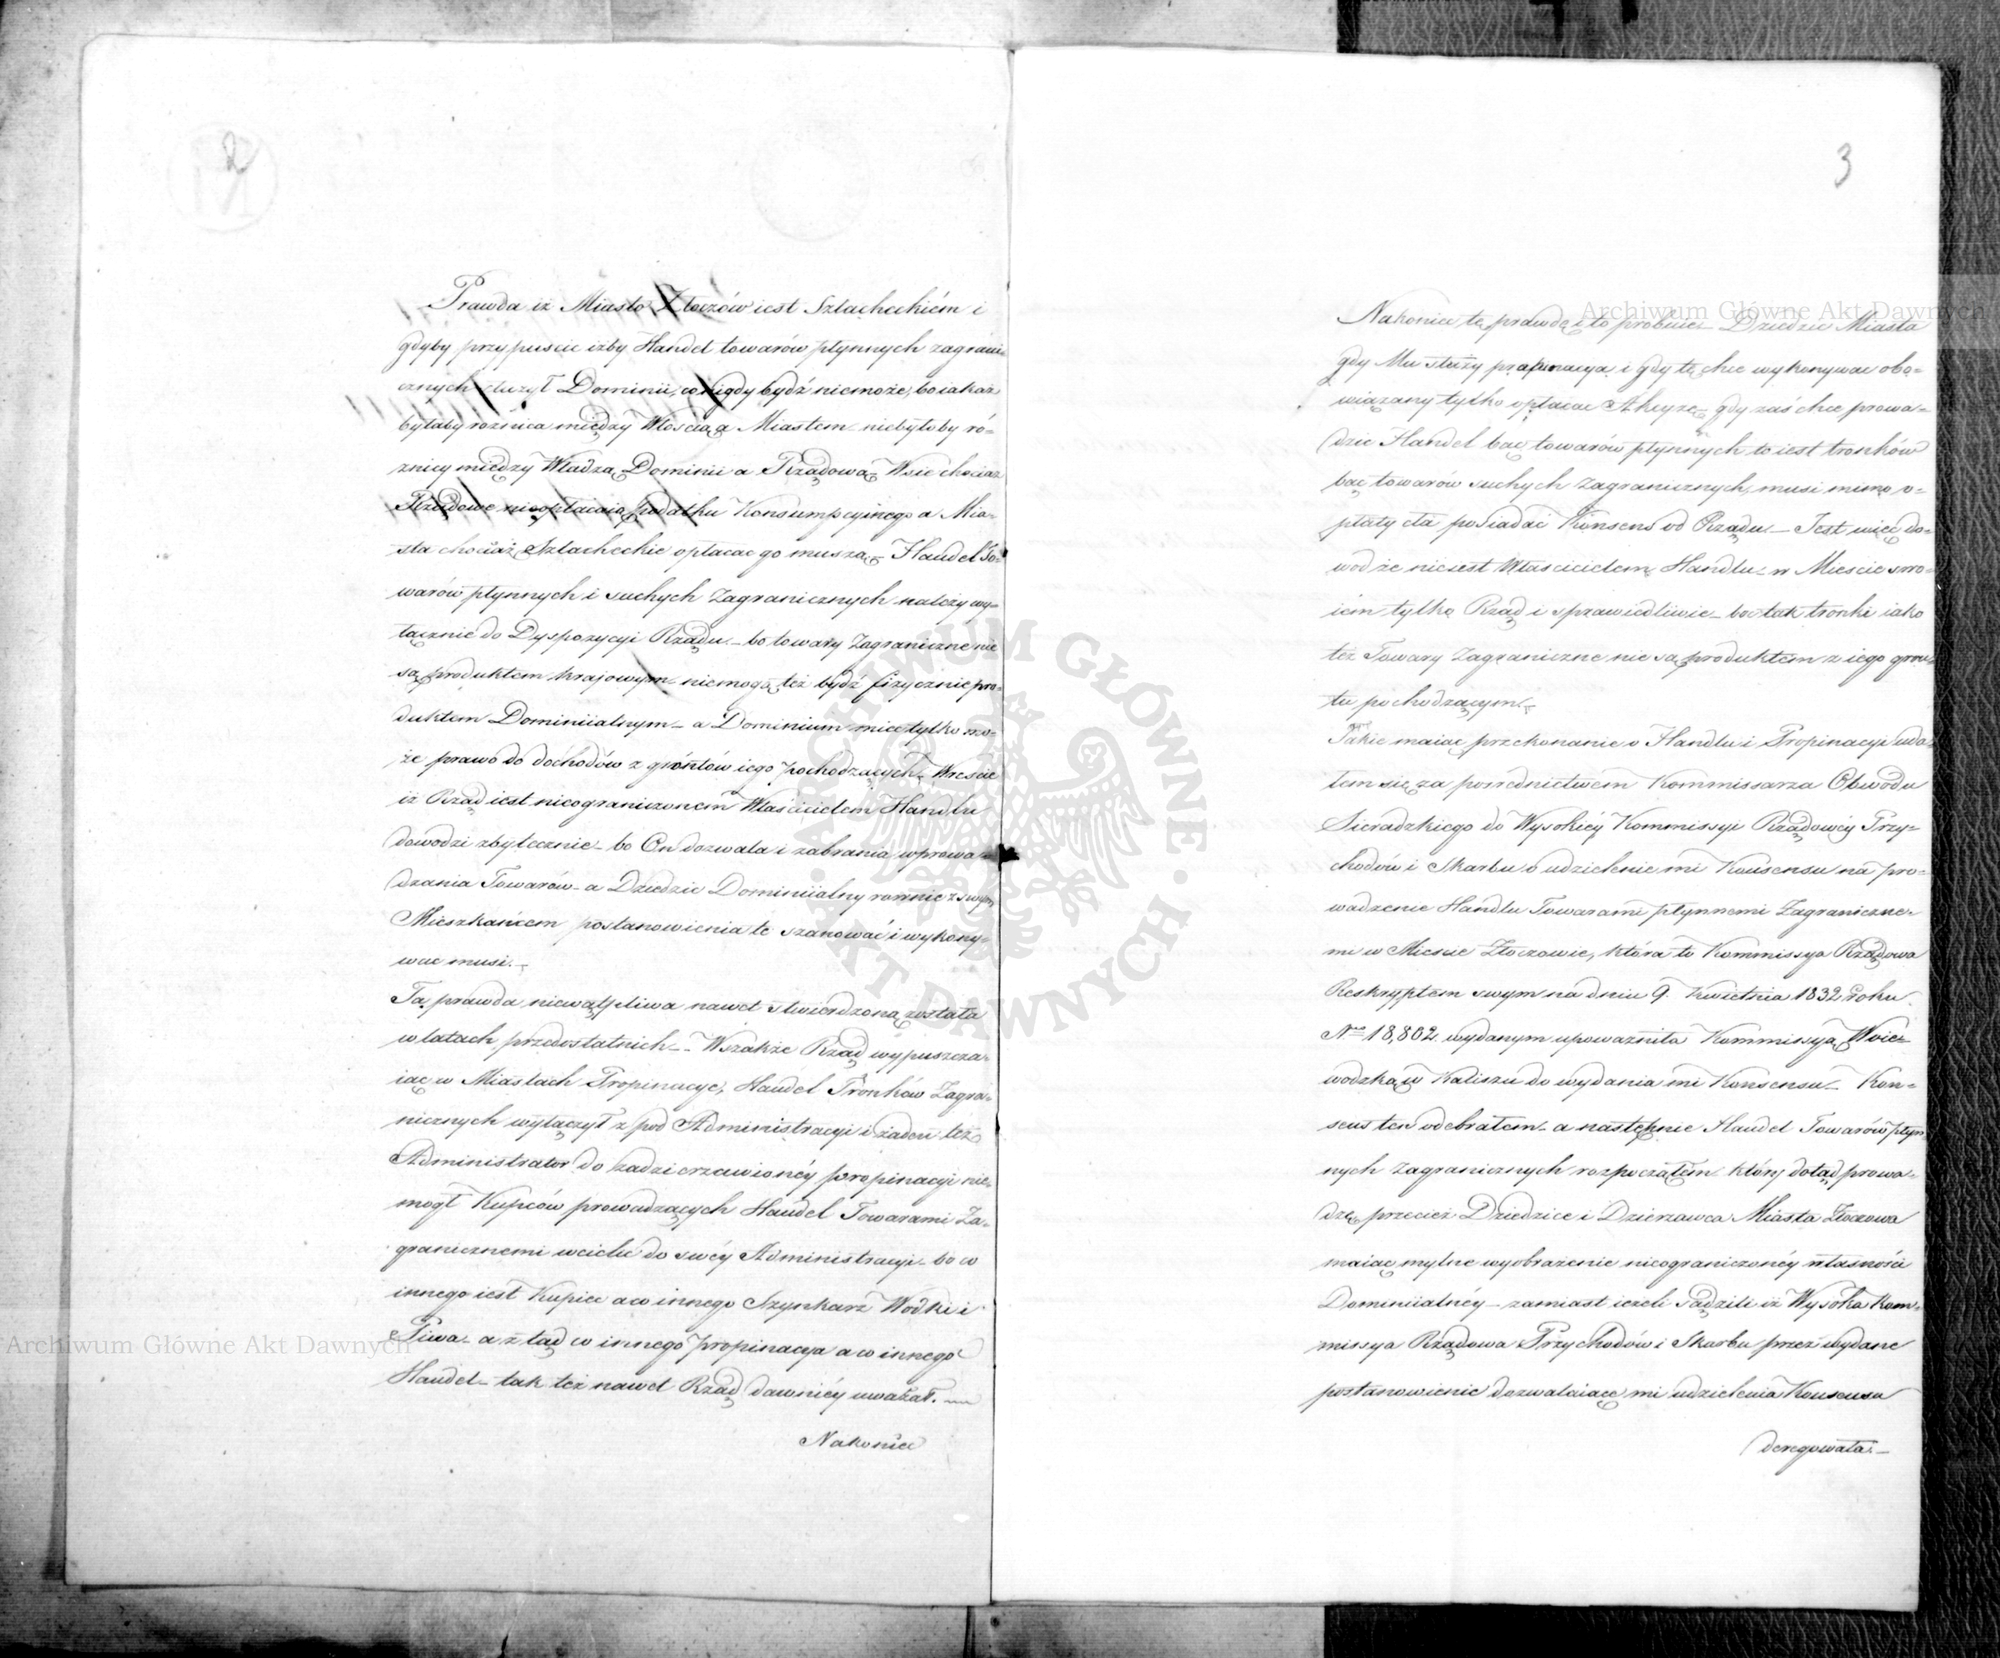 2
Prawda iż Miasto Złoczów iest Szlacheckiém i
gdyby przypuście iżby Handel towarów płynnych zagrani-
cznych służył Dominii, co nigdy bydź niemoże, bo iakaż
byłaby różnica między Włością a Miastem niebyłoby ró-
żnicy między Władzą Dominii a Rządową Wsie chociaż
Rządowe nieopłacaią podatku Konsumpcyinego a Mia-
sta chociaż Szlacheckie opłacac go muszą – Handel To-
warów płynnych i suchych Zagranicznych należy wy-
łącznie do Dyspozycyi Rządu – bo towary Zagraniczne nie
są produktem krajowym niemogą też bydź fizycznie pro-
duktem Dominiialnym – a Dominium mieć tylko mo-
że prawo do dochodów z gróntów iego pochodzących – Wreście
iż Rząd iest nieograniczoném Właścicielem Handlu
dowodzi zbytecznie – bo On dozwala i zabrania wprowa-
dzania Towarów – a Dziedzic Dominiialny rownie z swym
Mieszkańcem postanowienia te szanować i wykony-
wac musi. –
Ta prawda niewątpliwa nawet stwierdzoną została
w latach przedostatnich – Wszakże Rząd wypuszcza-
iąc w Miastach Propinacye, Handel Tronków Zagra-
nicznych wyłączył z pod Administracyi i żaden też
Administrator do zadzierzawionéy propinacyi nie-
mógł Kupców prowadzących Handel Towarami Za-
granicznemi wcielić do swéy Administracyi – bo co
innego iest Kupiec a co innego Szynkarz Wódki i
Piwa – a z tąd co innego propinacya a co innego
Handel – tak też nawet Rząd dawniéy uważał. –
Nakoniec
3
Nakoniec tę prawdę i to probuie – Dziedzic Miasta
gdy Mu służy propinacya i gdy tę chce wykonywac obo-
wiązany tylko opłacac Akcyzę – gdy zaś chce prowa-
dzić Handel bąć towarów płynnych to iest tronków
bąć towarów suchych Zagranicznych, musi mimo o-
płaty cła posiadać Konsens od Rządu – Jest więc do-
wód że nieiest Właścicielem Handlu w Mieście swo-
iém tylko Rząd i sprawiedliwie – bo tak tronki iako
też Towary Zagraniczne nie są produktem z iego grón-
tu pochodzącym –
Takie maiąc przekonanie o Handlu i Propinacyi uda-
łem się za posrednictwem Kommissarza Obwodu
Sieradzkiego do Wysokiéy Kommissyi Rządowéy Przy-
chodów i Skarbu o udzielenie mi Konsensu na pro-
wadzenie Handlu Towarami płynnemi Zagraniczne-
mi w Mieście Złoczowie, która to Kommissya Rządowa
Reskryptem swym na dniu 9. Kwietnia 1832 roku
Nro 18,802 wydanym upoważniła Kommissyą Woie-
wodzką w Kaliszu do wydania mi Konsensu – Kon-
sens ten odebrałem – a następnie Handel Towarów płyn-
nych Zagranicznych rozpocząłem który dotąd prowa-
dzę, przecież Dziedzic i Dzierzawca Miasta Złoczowa
maiąc mylne wyobrażenie nieograniczonéy własności
Dominiialnéy – zamiast ieżeli sądzili iż Wysoka Kom-
missya Rządowa Przychodów i Skarbu przez wydane
postanowienie dozwalaiące mi udzielenia Konsensu
derogowała. –
Archiwum Główne Akt Dawnych
Archiwum Główne Akt Dawnych
ARCHIWUM GŁÓWNE AKT DAWNYCH